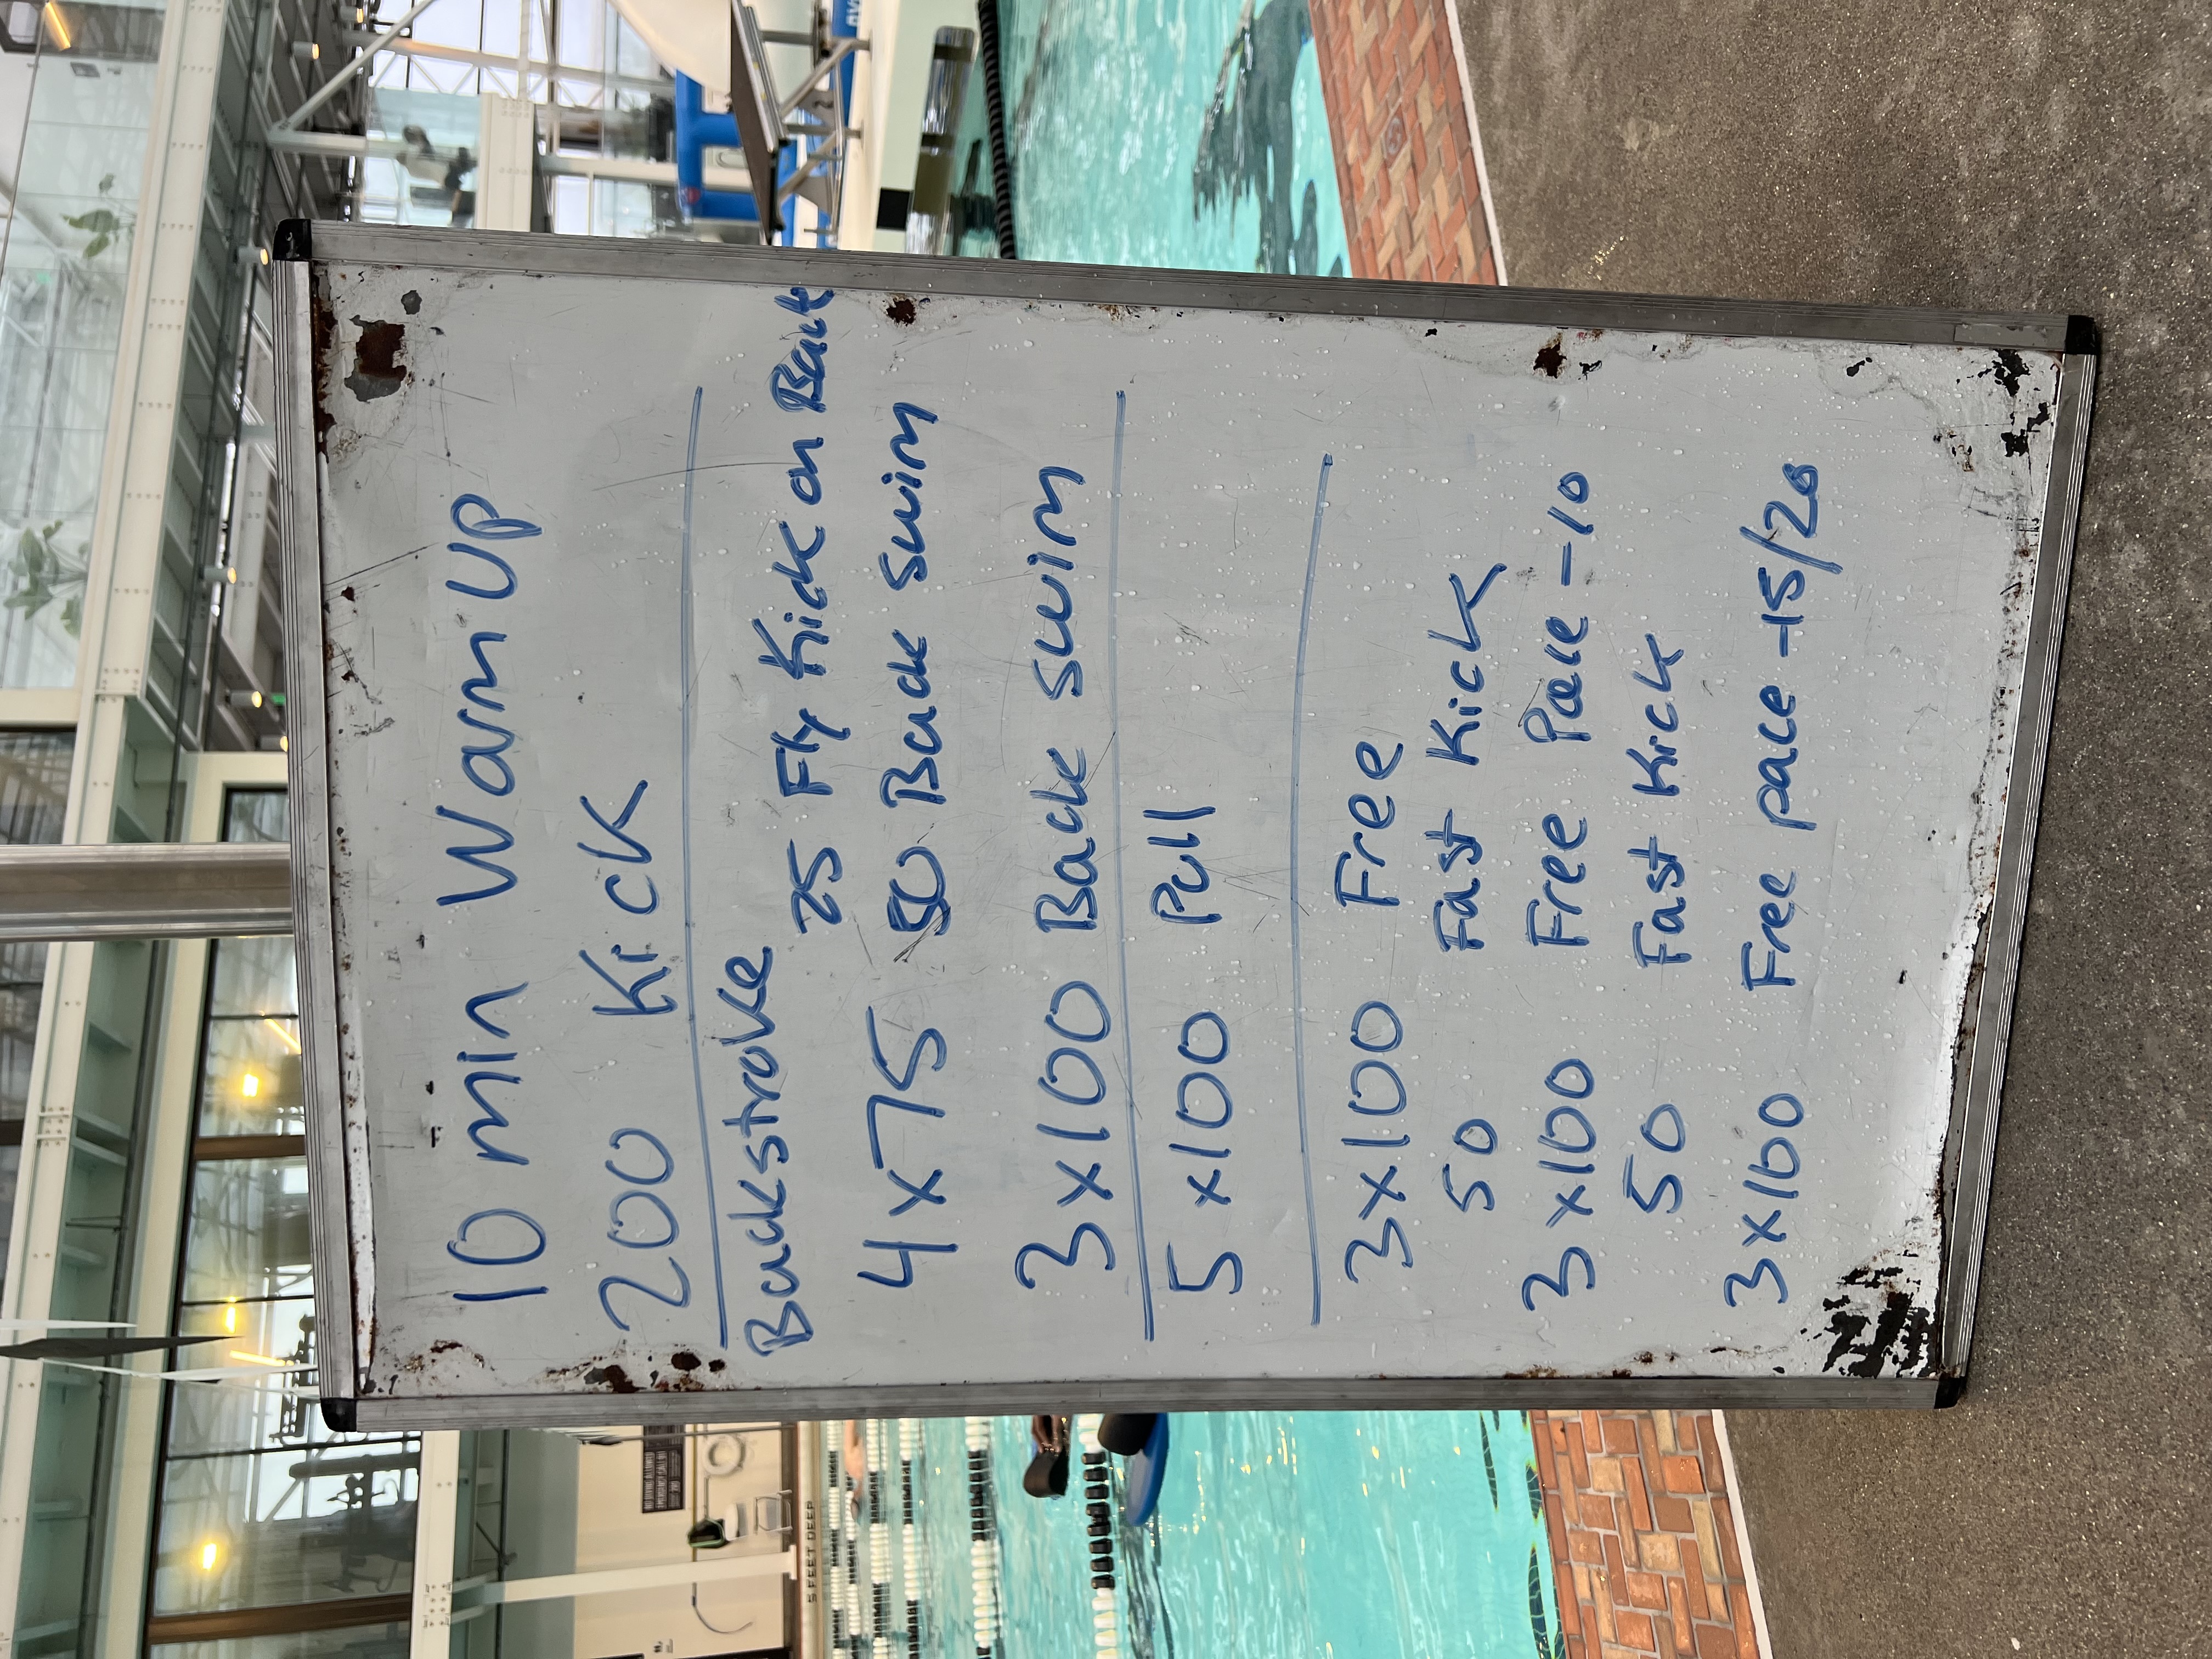 10 min Warm Up
200 Kick
Backstroke
25 Fly Kick on Back
4x75 50 Back swim
3x100 Back swim
5x100 Pull
3x100 Free
50 Fast Kick
3x100 Free Pace -10
50 Fast Kick
3x100 Free pace -15/20
5 FEET DEEP